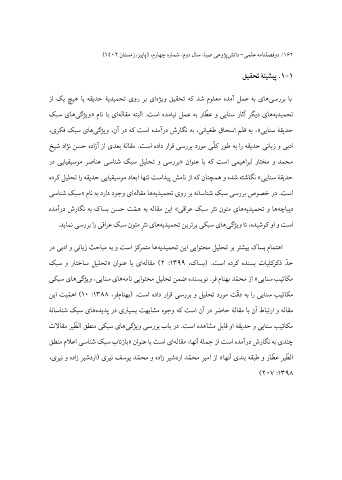 ۱۶۲/ دوفصلنامه علمی- دانش‌پژوهی صبا، سال دوم، شماره چهارم، (پاییز، زمستان ۱۴۰۲)
۱-۱. پیشینۀ تحقیق
با بررسی‌های به عمل آمده معلوم شد که تحقیق ویژه‌ای بر روی تحمیدیۀ حدیقه یا هیچ یک از
تحمیدیه‌های دیگر آثار سنایی و عطّار به عمل نیامده است. البته مقاله‌ای با نام «ویژگی‌های سبک
حدیقۀ سنایی»، به قلم اسحاق طغیانی، به نگارش درآمده است که در آن، ویژگی‌های سبک فکری،
ادبی و زبانی حدیقه را به طور کلّی مورد بررسی قرار داده است. مقالۀ بعدی از آزاده حسن نژاد شیخ
محمد و مختار ابراهیمی است که با عنوان «بررسی و تحلیل سبک شناسی عناصر موسیقیایی در
حدیقۀ سنایی» نگاشته شده و همچنان که از نامش پیداست تنها ابعاد موسیقیایی حدیقه را تحلیل کرده
است. در خصوص بررسی سبک شناسانه بر روی تحمیدیه‌ها مقاله‌ای وجود دارد به نام «سبک شناسی
دیباچه‌ها و تحمیدیه‌های متون نثر سبک عراقی» این مقاله به همّت حسن بساک به نگارش درآمده
است و او کوشیده، تا ویژگی‌های سبکی برترین تحمیدیه‌های نثرِ متون سبک عراقی را بررسی نماید.
اهتمام بساک بیشتر بر تحلیل محتوایی این تحمیدیه‌ها متمرکز است و به مباحث زبانی و ادبی در
حدّ ذکر کلیات بسنده کرده است. (بساک، ۱۳۹۹: ۲) مقاله‌ای با عنوان «تحلیل ساختار و سبک
مکاتیب سنایی» از محمّد بهنام فر. نویسنده ضمن تحلیل محتوایی نامه‌های سنایی، ویژگی‌های سبکی
مکاتیب سنایی را به دقّت مورد تحلیل و بررسی قرار داده است. (بهنام‌فر، ۱۳۸۸: ۱۰) اهمّیت این
مقاله و ارتباط آن با مقالۀ حاضر در آن است که وجوه مشابهت بسیاری در پدیده‌های سبک شناسانۀ
مکاتیب سنایی و حدیقۀ او قابل مشاهده است. در باب بررسی ویژگی‌های سبکی منطق الطّیر مقالات
چندی به نگارش درآمده است از جملۀ آنها، مقاله‌ای است با عنوان «بازتاب سبک شناسی اعلام منطق
الطّیر عطّار و طبقه بندی آنها» از امیر محمّد اردشیر زاده و محمّد یوسف نیری (اردشیر زاده و نیری،
۱۳۹۸: ۲۰۷)